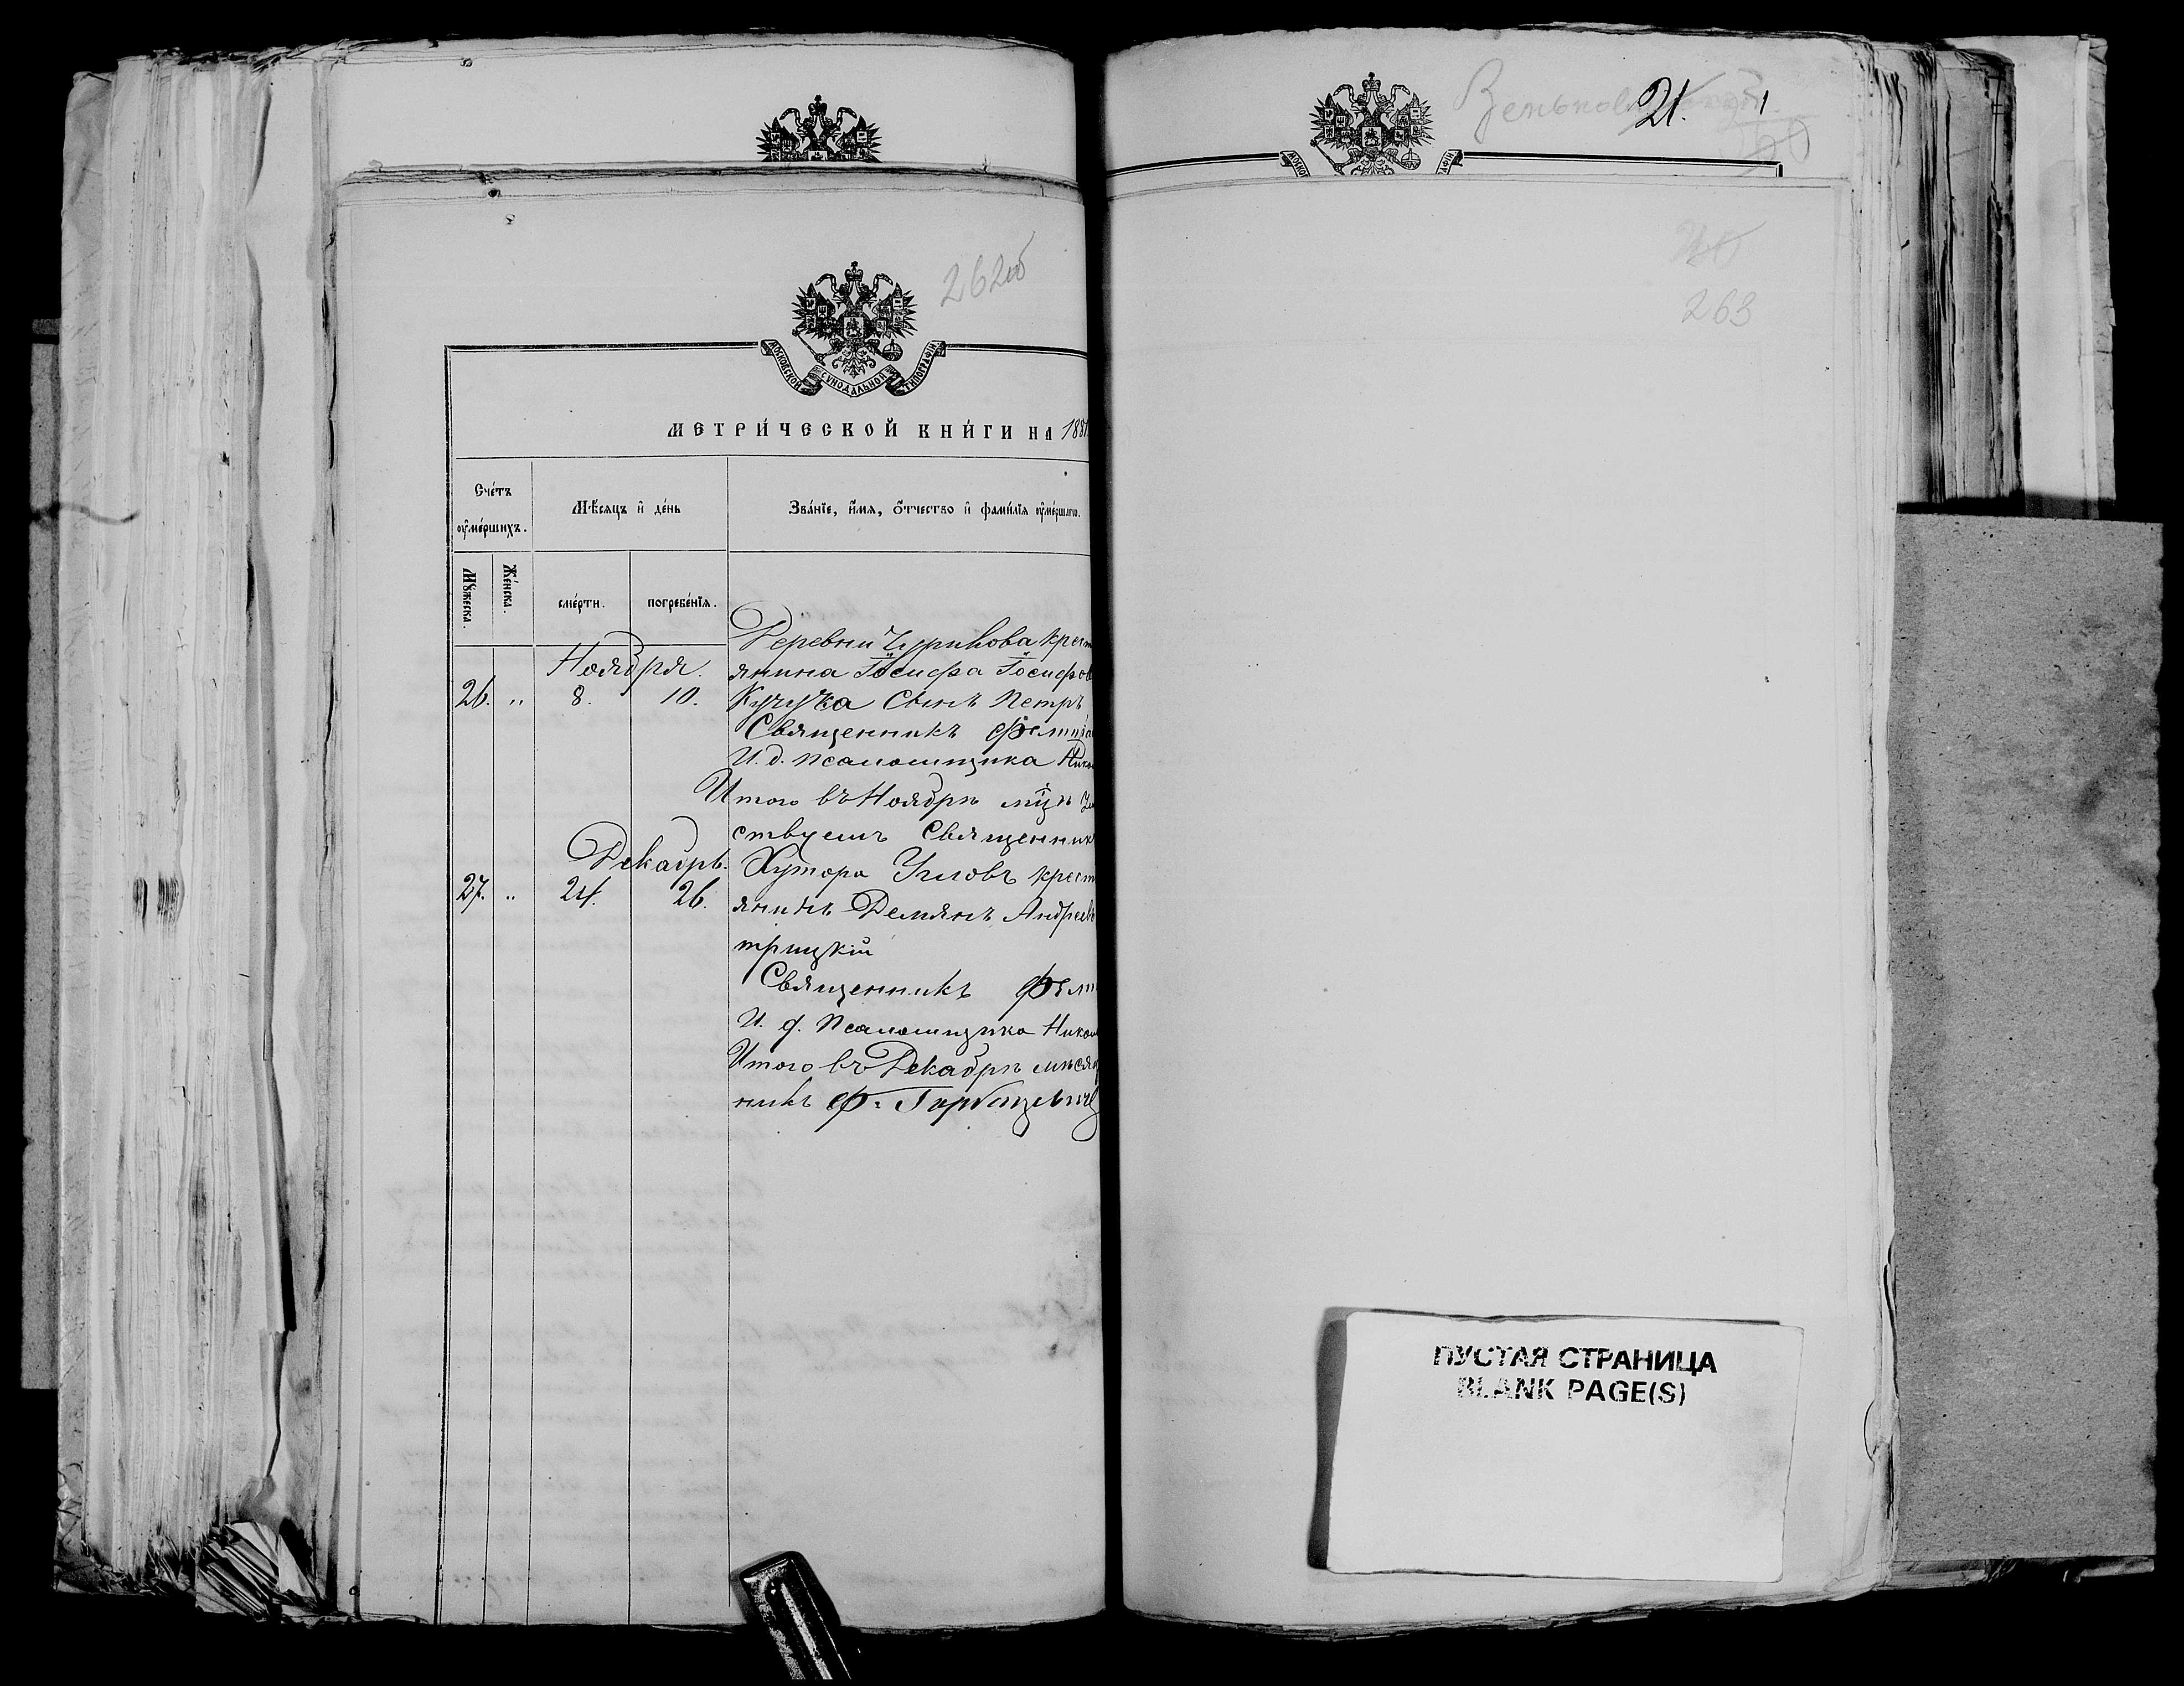 262об
МОСКОВСКОЙ СѴНОДАЛЬНОЙ ТИПОГРАФІИ
МЕТРИ́ЧЕСКОЙ КНИ́ГИ НА 188
Сче́тъ оу҆ме́ршихъ.
Мѣ́сяцъ и҆ де́нь
Зва́нїе, и҆́мя, ѻ҆́тчество и҆ фами́лїя оу҆ме́ршагѡ.
Мꙋ́жеска.
Же́нска.
сме́рти.
погребе́нїя.
Деревни Чурикова крест
Ноября. янина Іосифа Іосифов
26. „ 8. 10. Кучука Сынъ Петръ
Священникъ
И. д. псаломщика Нико
Итого въ Ноябрѣ
ствуетъ Священник
Декабрь. Хутора Угловъ крест
27. „ 24. 26. янинъ Демянъ Андреев
трицкій
Священникъ
И. д. Псаломщика Никол
Итого въ Декабрѣ мѣсяц
никъ Ф. Горбацевич
21.
263
ПУСТАЯ СТРАНИЦА
BLANK PAGE(S)